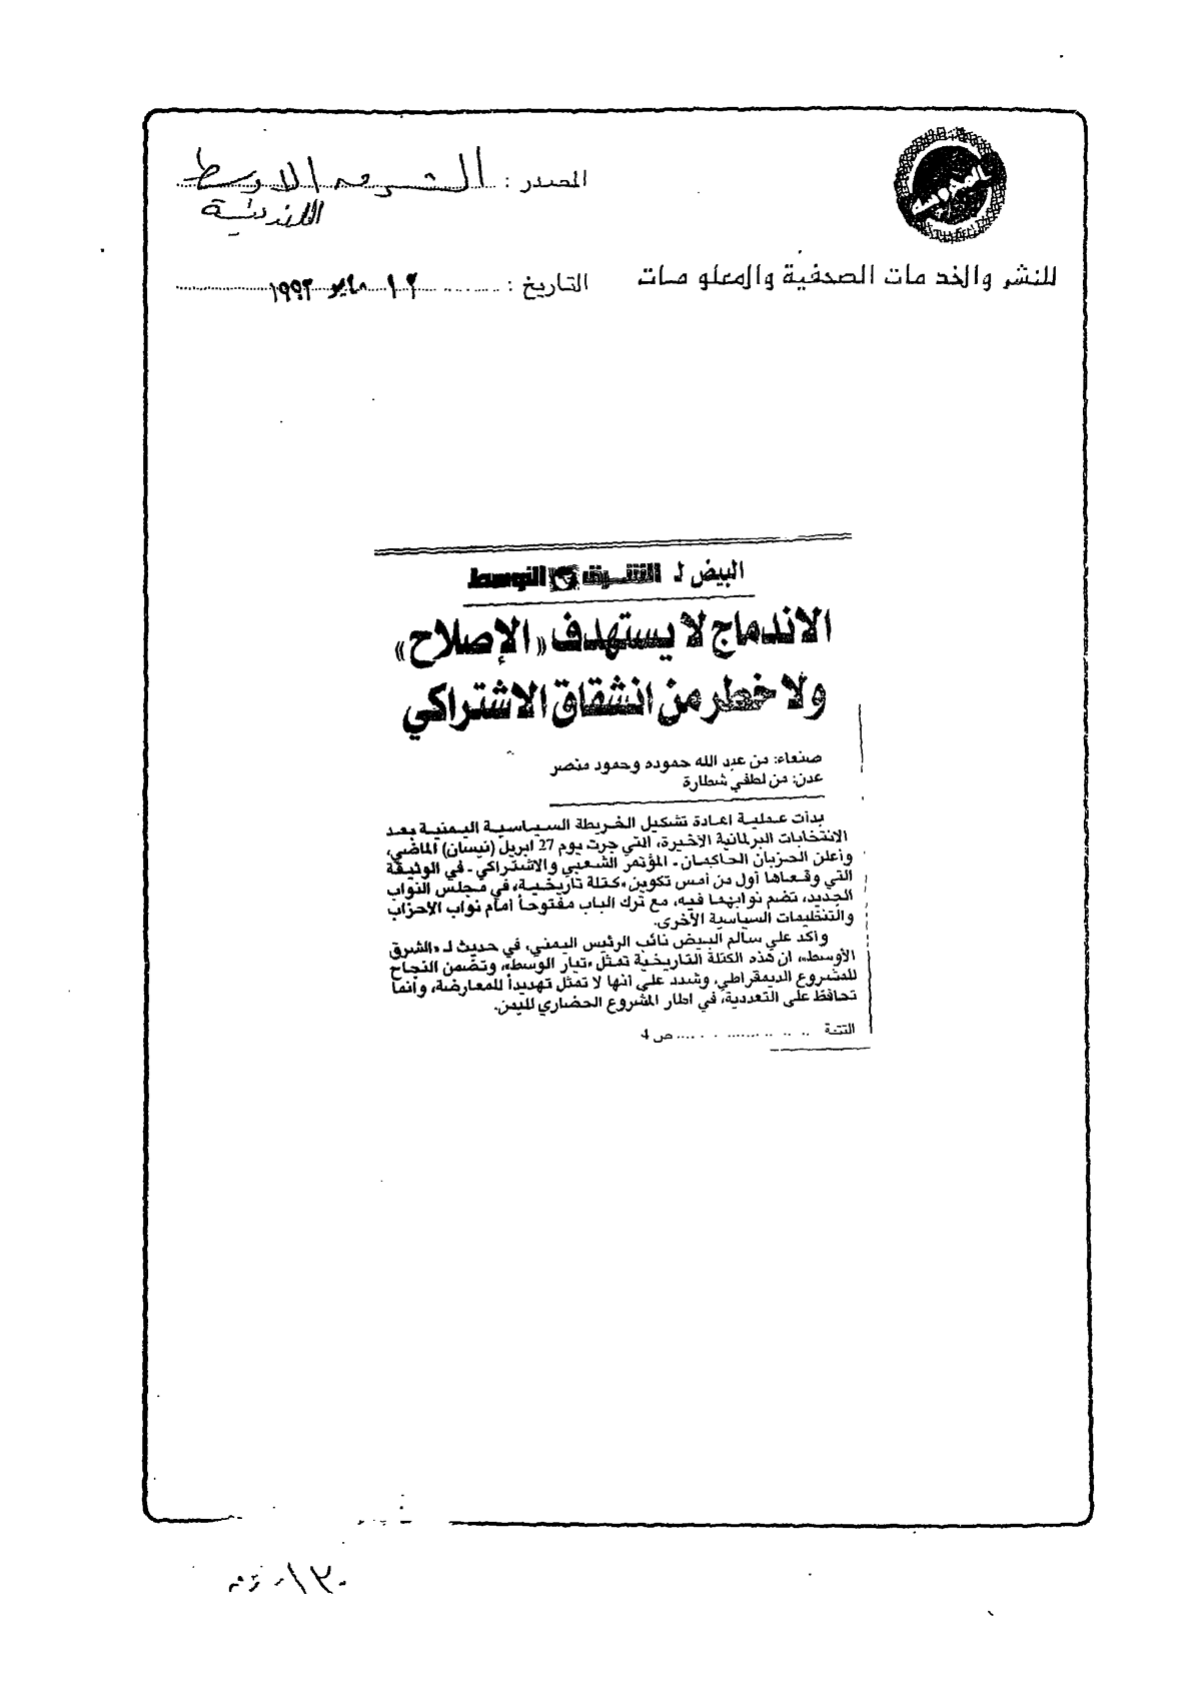 المصدر : الشرق الاوسط
اللندنية
للنشر والخدمات الصحفية والمعلومات
التاريخ : ١٢ مايو ١٩٩٣
البيض لـ الشرق الاوسط
الاندماج لا يستهدف «الإصلاح»
ولا خطر من انشقاق الاشتراكي
صنعاء: من عبد الله حموده وحمود منصر
عدن: من لطفي شطارة
بدأت عملية اعادة تشكيل الخريطة السياسية اليمنية بعد
الانتخابات البرلمانية الأخيرة، التي جرت يوم 27 ابريل (نيسان) الماضي،
وأعلن الحزبان الحاكمان - المؤتمر الشعبي والاشتراكي - في الوثيقة
التي وقعاها أول من أمس تكوين «كتلة تاريخية» في مجلس النواب
الجديد، تضم نوابهما فيه، مع ترك الباب مفتوحاً أمام نواب الأحزاب
والتنظيمات السياسية الأخرى.
وأكد علي سالم البيض نائب الرئيس اليمني، في حديث لـ «الشرق
الأوسط»، ان هذه الكتلة التاريخية تمثل «تيار الوسط»، وتضمن النجاح
للمشروع الديمقراطي، وشدد على أنها لا تمثل تهديداً للمعارضة، وأنما
تحافظ على التعددية، في اطار المشروع الحضاري لليمن.
التتمة ........ ص 4